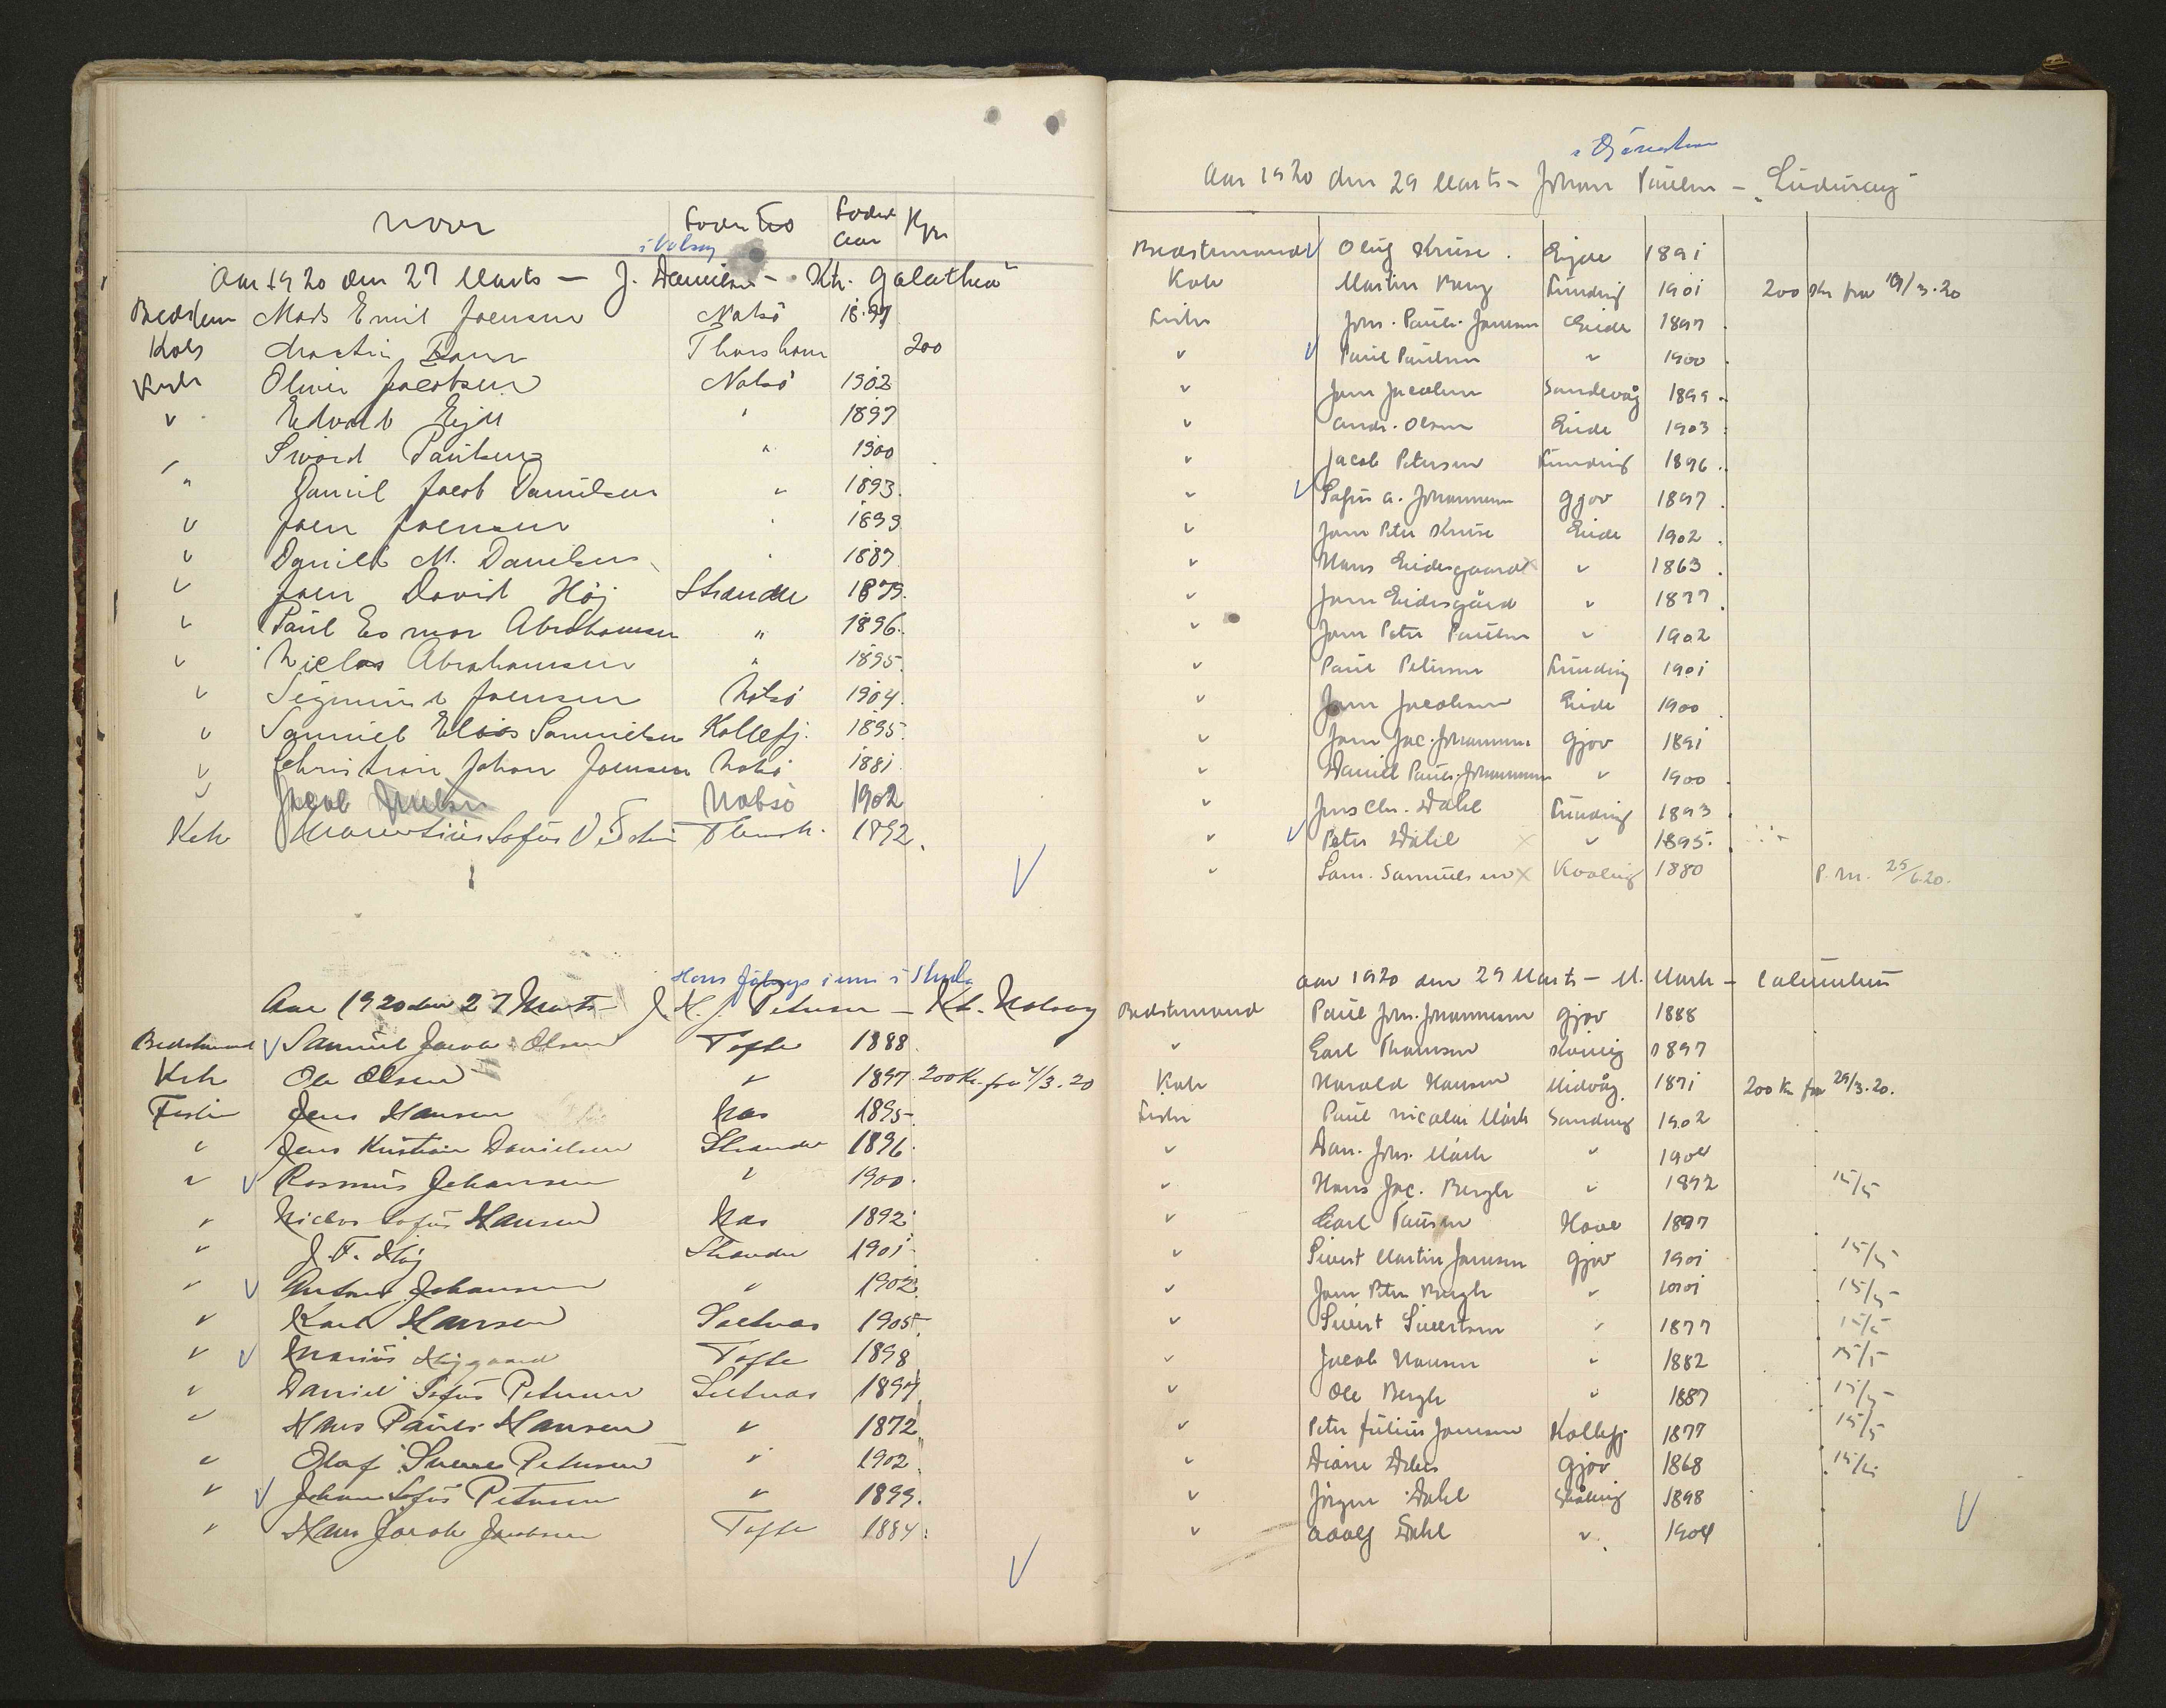 Navn Føde Aar Kr
i Nolsøy
Aar 1920 den 27 Marts — J. Danielsen — Kt. Galathea
Bedstem Mads Emil Joensen Nolsö 1897
Kok Thorshavn 200
Fisker Oliver Jacobsen Nolsö 1902
" Edvard 1897
" Paulsen " 1900
" Daniel Jacob Danielsen " 1893
" Joen Joensen " 1899
" Daniel M. Danielsen " 1887
" Joen David Höj Strender 1879
" Paul Abrahamsen " 1896
" Niclas Abrahamsen " 1895
" Sigmund Joensen Nolsö 1904
" Samuel Elias Samuelsen Kollefj. 1895
" Christian Johan Joensen Nolsö 1881
" Jacob Nolsö 1902
Kok Sofus Thorsh. 1892
Aar 1920 den 27 Marts — J. H. J. Petersen — Kt. Nolsoy
Bedstemand Samuel Jacob Olsen Tofte 1888
Kok Ole Olsen " 1897 200 Kr. fra 4/3.20
Fisker Jens Hansen Næs 1895
" Jens Kristian Danielsen Strender 1896
" Rasmus Johansen " 1900
" Niclas Sofus Hansen Næs 1892
" J. F. Höj Strender 1901
" Anton Johansen " 1902
" Karl Hansen Saltnæs 1905
" Marius Højgaard Tofte 1898
" Daniel Sofus Petersen Saltnæs 1897
" Hans Pauli Hansen " 1872
" Olaf Petersen " 1902
" Johan Sofus Petersen " 1899
" Hans Jacob Jacobsen Tofte 1884
Aar 1920 den 29 Marts — Johan Paulsen — "Suduroy"
Bedstemand Oluf Kruse Ejde 1891
Kok Martin Funding 1901 200 Kr fra 19/3.20
Fisker Johs. Pauli Joensen Eide 1897
" Paul Paulsen " 1900
" Joen Jacobsen Sandevåg 1899
" Andr. Olsen Eide 1903
" Jacob Petersen Funding 1896
" Sofus A. Johannesen Gjov 1897
" Joen Peter Kruse Eide 1902
" Hans Eidesgaard " 1863
" Joen Eidesgård " 1877
" Joen Peter Paulsen " 1902
" Paul Petersen Funding 1901
" Joen Jacobsen Eide 1900
" Joen Jac. Johannesen Gjov 1891
" Daniel Pauli Johannesen " 1900
" Jens Chr. Dahl Funding 1893
" Peter Dahl " 1895
" Sam. Samuelsen Kvaling 1880 P.M. 25/6.20.
Aar 1920 den 29 Marts — M. Mørk — Columbus
Bedstemand Paul Johs. Johannesen Gjov 1888
" Earl Thomsen 1897
Kok Harald Hansen Midvåg 1871 200 Kr fra 29/3.20.
Fisker Paul Nicolai Mörk Funding 1902
" Dan. Johs. Mörk " 1904
" Hans Jac. Bergh " 1892 15/5
" Carl Hove 1897
" Sivert Martin Joensen Gjov 1901 15/5
" Joen Peter Bergh " 1901 15/5
" Sivert Sivertsen " 1877 15/5
" Jacob Hansen " 1882 15/5
" Ole Bergh " 1887 15/5
" Peter Julius Joensen Kollefj 1877 15/5
" Gjov 1868 15/5
" Jörgen Dahl Skåling 1898
" Adolf Dahl " 1904